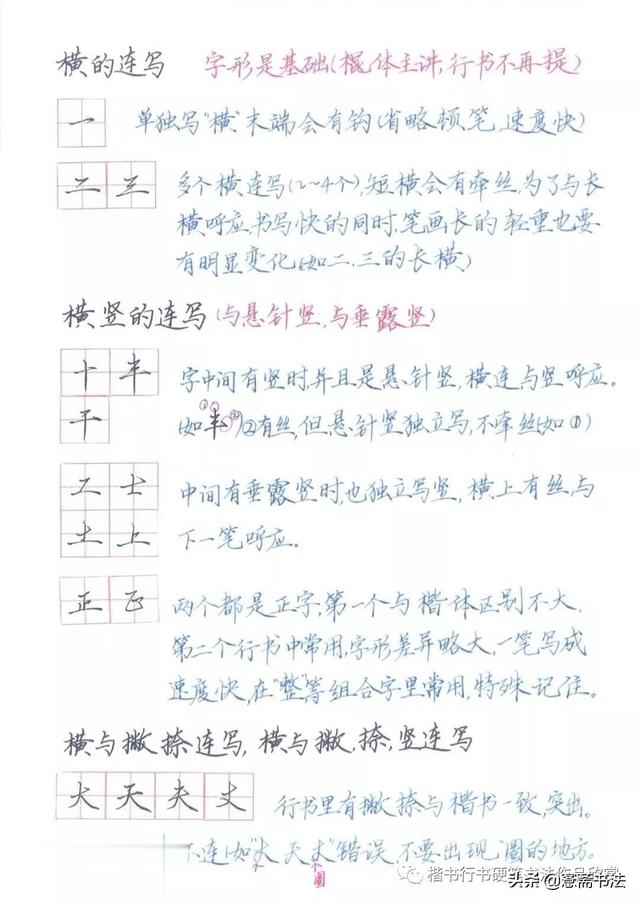 横的连写 字形是基础(楷体主讲,行书不再提)
一 单独写"横"末端会有钩(省略顿笔,速度快)
二 三 多个横连写(2~4个),短横会有牵丝,为了与长
横呼应,书写快的同时,笔画长的轻重也要
有明显变化(如二.三的长横)
横竖的连写(与悬针竖,与垂露竖)
十 半 字中间有竖时,并且是悬针竖,横连与竖呼应。
干 (如半)②有丝,但悬针竖独立写,不牵丝(如①)
工 士 中间有垂露竖时,也独立写竖,横上有丝,与
土 上 下一笔呼应。
正 正 两个都是正字,第一个与楷体区别不大.
第二个行书中常用,字形差异略大,一笔写成
速度快,在"整"等组合字里常用,特殊记住。
横与撇捺连写,横与撇,捺,竖连写
大 天 夫 丈 行书里有撇捺与楷书一致,突出。
不连(如"大 天 丈"错误,不要出现"圈的地方。
个圈
楷书行书硬笔书法作品欣赏
头条@慧斋书法